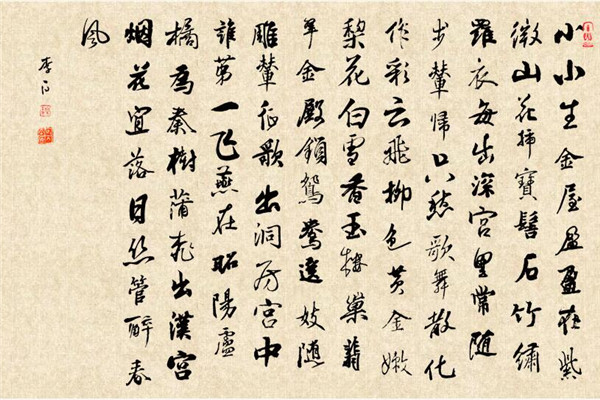 小小生金屋盈盈在紫
微山花插寶髻石竹繡
羅衣每出深宮里常隨
步輦歸只愁歌舞散化
作彩云飛柳色黃金嫩
梨花白雪香玉樓巢翡
翠金殿鎖鴛鴦選妓隨
雕輦征歌出洞房宮中
誰第一飛燕在昭陽盧
橘為秦樹蒲桃出漢宮
烟花宜落日丝管醉春
風
李白